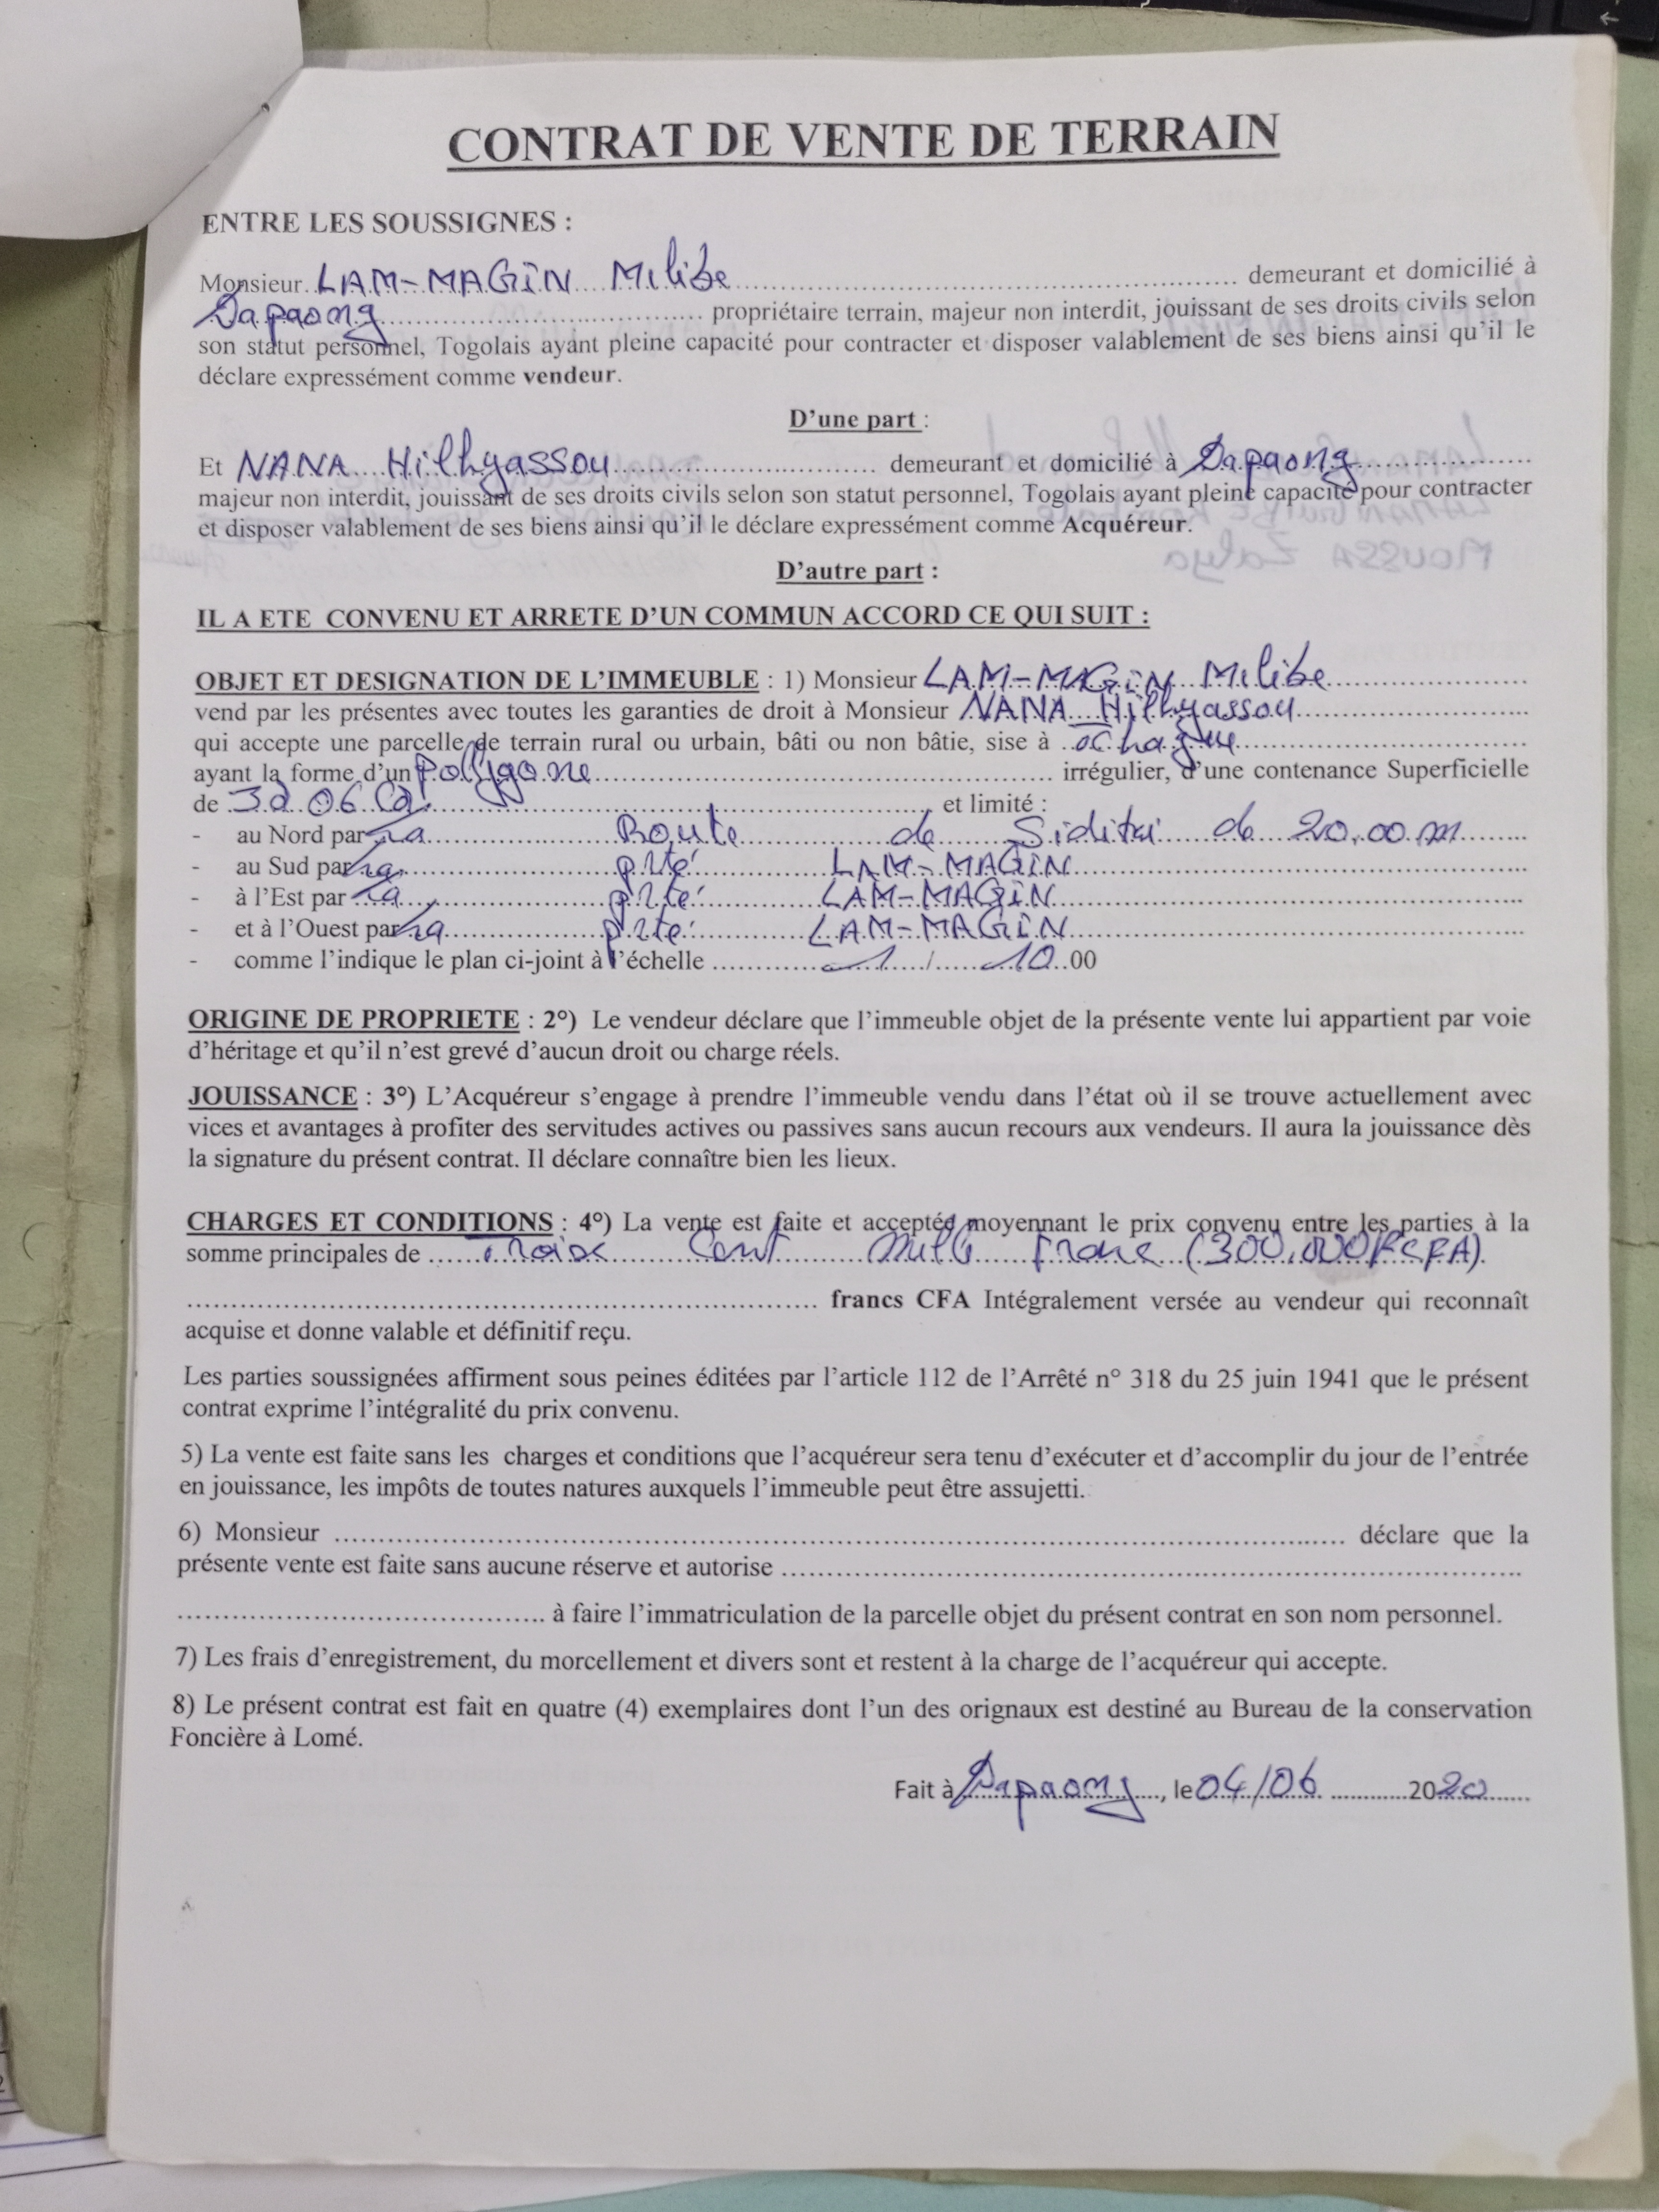 CONTRAT DE VENTE DE TERRAIN
ENTRE LES SOUSSIGNES :
Monsieur LAM-MAGIN Milibe demeurant et domicilié à
Dapaong propriétaire terrain, majeur non interdit, jouissant de ses droits civils selon
son statut personnel, Togolais ayant pleine capacité pour contracter et disposer valablement de ses biens ainsi qu'il le
déclare expressément comme vendeur.
D'une part :
Et NANA Hilhyassou demeurant et domicilié à Dapaong
majeur non interdit, jouissant de ses droits civils selon son statut personnel, Togolais ayant pleine capacité pour contracter
et disposer valablement de ses biens ainsi qu'il le déclare expressément comme Acquéreur.
D'autre part :
IL A ETE CONVENU ET ARRETE D'UN COMMUN ACCORD CE QUI SUIT :
OBJET ET DESIGNATION DE L'IMMEUBLE : 1) Monsieur LAM-MAGIN Milibe
vend par les présentes avec toutes les garanties de droit à Monsieur NANA Hilhyassou
qui accepte une parcelle de terrain rural ou urbain, bâti ou non bâtie, sise à
ayant la forme d'un Polygone irrégulier, d'une contenance Superficielle
de 3a 06 ca et limité :
- au Nord par la Route de de 20,00 m
- au Sud par la pté LAM-MAGIN
- à l'Est par la pté LAM-MAGIN
- et à l'Ouest par la pté LAM-MAGIN
- comme l'indique le plan ci-joint à l'échelle 1 / 10 00
ORIGINE DE PROPRIETE : 2°) Le vendeur déclare que l'immeuble objet de la présente vente lui appartient par voie
d'héritage et qu'il n'est grevé d'aucun droit ou charge réels.
JOUISSANCE : 3°) L'Acquéreur s'engage à prendre l'immeuble vendu dans l'état où il se trouve actuellement avec
vices et avantages à profiter des servitudes actives ou passives sans aucun recours aux vendeurs. Il aura la jouissance dès
la signature du présent contrat. Il déclare connaître bien les lieux.
CHARGES ET CONDITIONS : 4°) La vente est faite et acceptée moyennant le prix convenu entre les parties à la
somme principales de Trois Cent Mille franc (300.000 F CFA).
francs CFA Intégralement versée au vendeur qui reconnaît
acquise et donne valable et définitif reçu.
Les parties soussignées affirment sous peines éditées par l'article 112 de l'Arrêté n° 318 du 25 juin 1941 que le présent
contrat exprime l'intégralité du prix convenu.
5) La vente est faite sans les charges et conditions que l'acquéreur sera tenu d'exécuter et d'accomplir du jour de l'entrée
en jouissance, les impôts de toutes natures auxquels l'immeuble peut être assujetti.
6) Monsieur ........ déclare que la
présente vente est faite sans aucune réserve et autorise ........
........ à faire l'immatriculation de la parcelle objet du présent contrat en son nom personnel.
7) Les frais d'enregistrement, du morcellement et divers sont et restent à la charge de l'acquéreur qui accepte.
8) Le présent contrat est fait en quatre (4) exemplaires dont l'un des orignaux est destiné au Bureau de la conservation
Foncière à Lomé.
Fait à Dapaong, le 04/06 2020